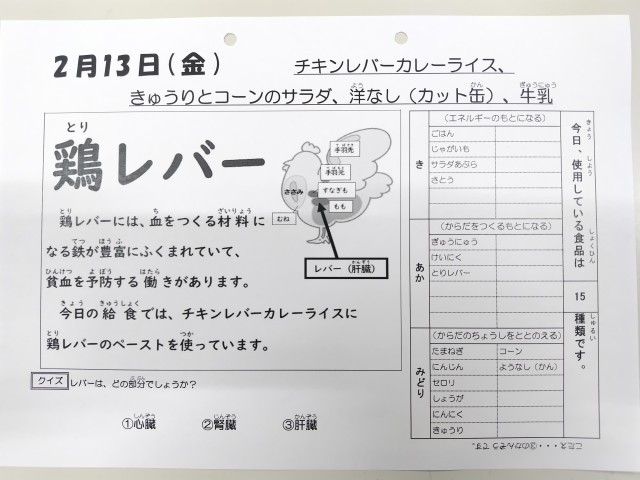 2月13日(金)
チキンレバーカレーライス、
きゅうりとコーンのサラダ、洋なし(カット缶)、牛乳
鶏レバー
鶏レバーには、血をつくる材料に
なる鉄が豊富にふくまれていて、
貧血を予防する働きがあります。
今日の給食では、チキンレバーカレーライスに
鶏レバーのペーストを使っています。
手羽先
手羽元
ささみ
すなぎも
もも
むね
レバー(肝臓)
クイズ
レバーは、どの部分でしょうか?
①心臓 ②腎臓 ③肝臓
き
(エネルギーのもとになる)
ごはん
じゃがいも
サラダあぶら
さとう
あか
(からだをつくるもとになる)
ぎゅうにゅう
けいにく
とりレバー
みどり
(からだのちょうしをととのえる)
たまねぎ コーン
にんじん ようなし(かん)
セロリ
しょうが
にんにく
きゅうり
今日、使用している食品は
15
種類です。
こたえ・・・③のかんぞうです。